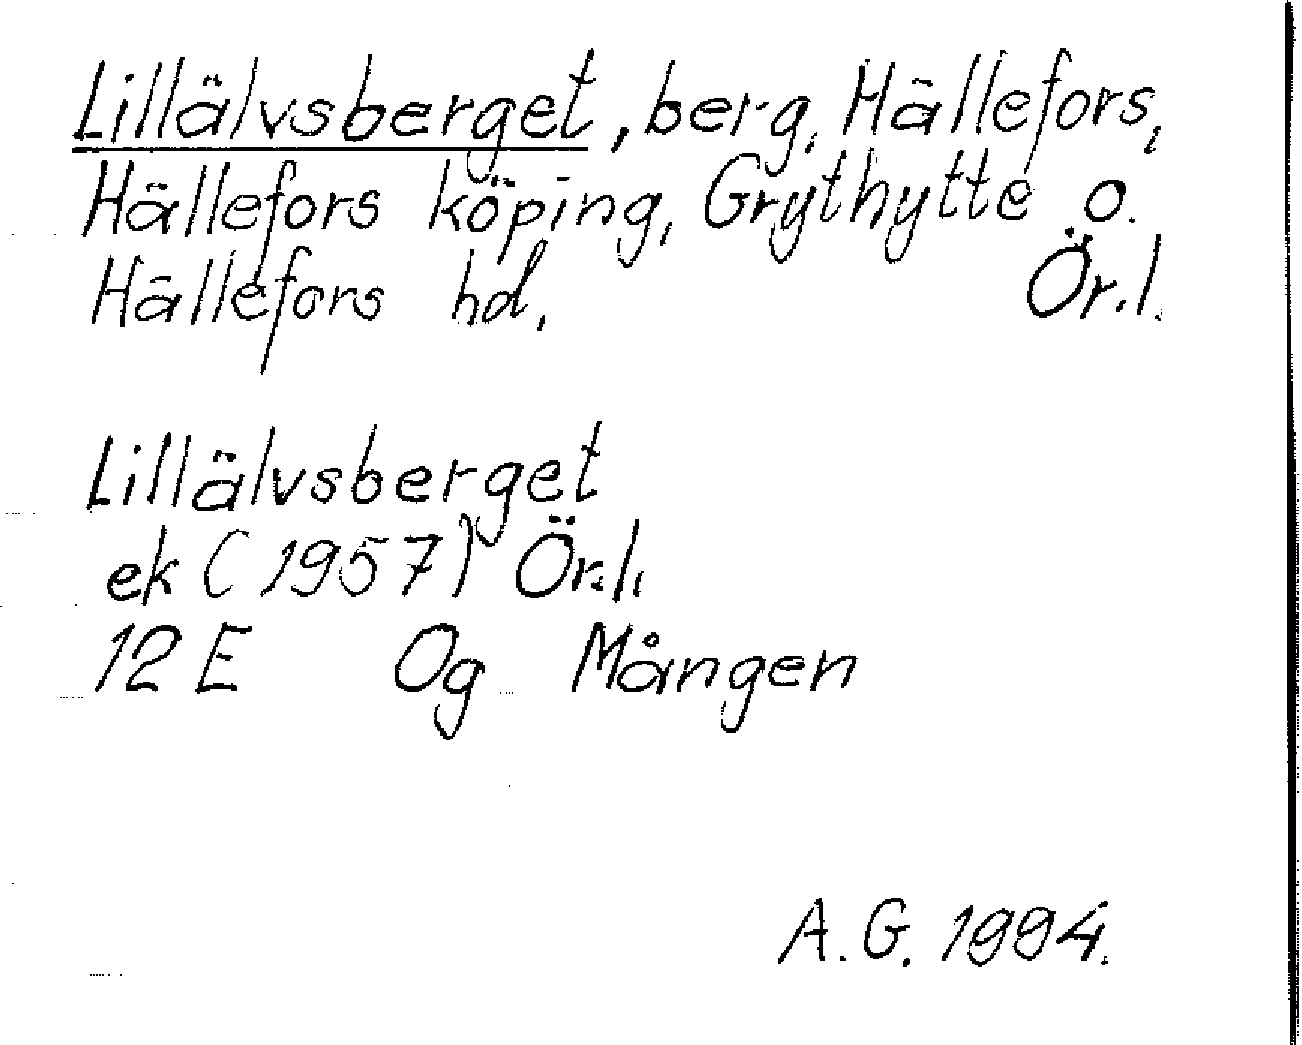 Lillälvsberget, berg, Hällefors,
Hällefors köping, Grythytte o.
Hällefors hd. Ör.l.
Lillälvsberget
ek (1957) Ör.l.
12E 0g Mången
A.G. 1994.